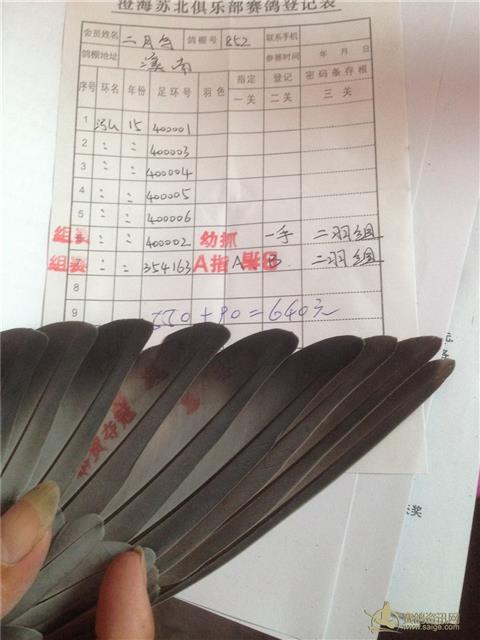 澄海苏北俱乐部赛鸽登记表
会员姓名 二月鸟 鸽棚号 852 联系手机
鸽棚地址 溪南 参赛时间 年 月 日
序号 环名 年份 足环号 羽色 指定 登记 密码条存根
一关 二关 三关
1 泓 15 400001
2 〃 〃 400003
3 〃 〃 400004
4 〃 〃 400005
5 〃 〃 400006
组 〃 〃 400002 幼抓 一手 二羽组
组 〃 〃 354163 A指 A B 二羽组
8
9 550+90=640元
奖
赛鸽资讯网
www.saige.com